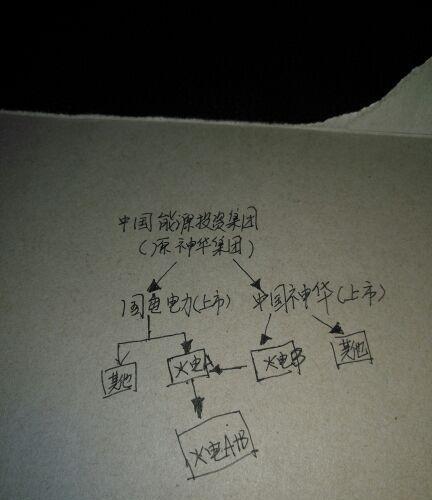 中国能源投资集团
（原神华集团）
国电电力（上市） 中国神华（上市）
其他 火电A 火电B 其他
火电A+B